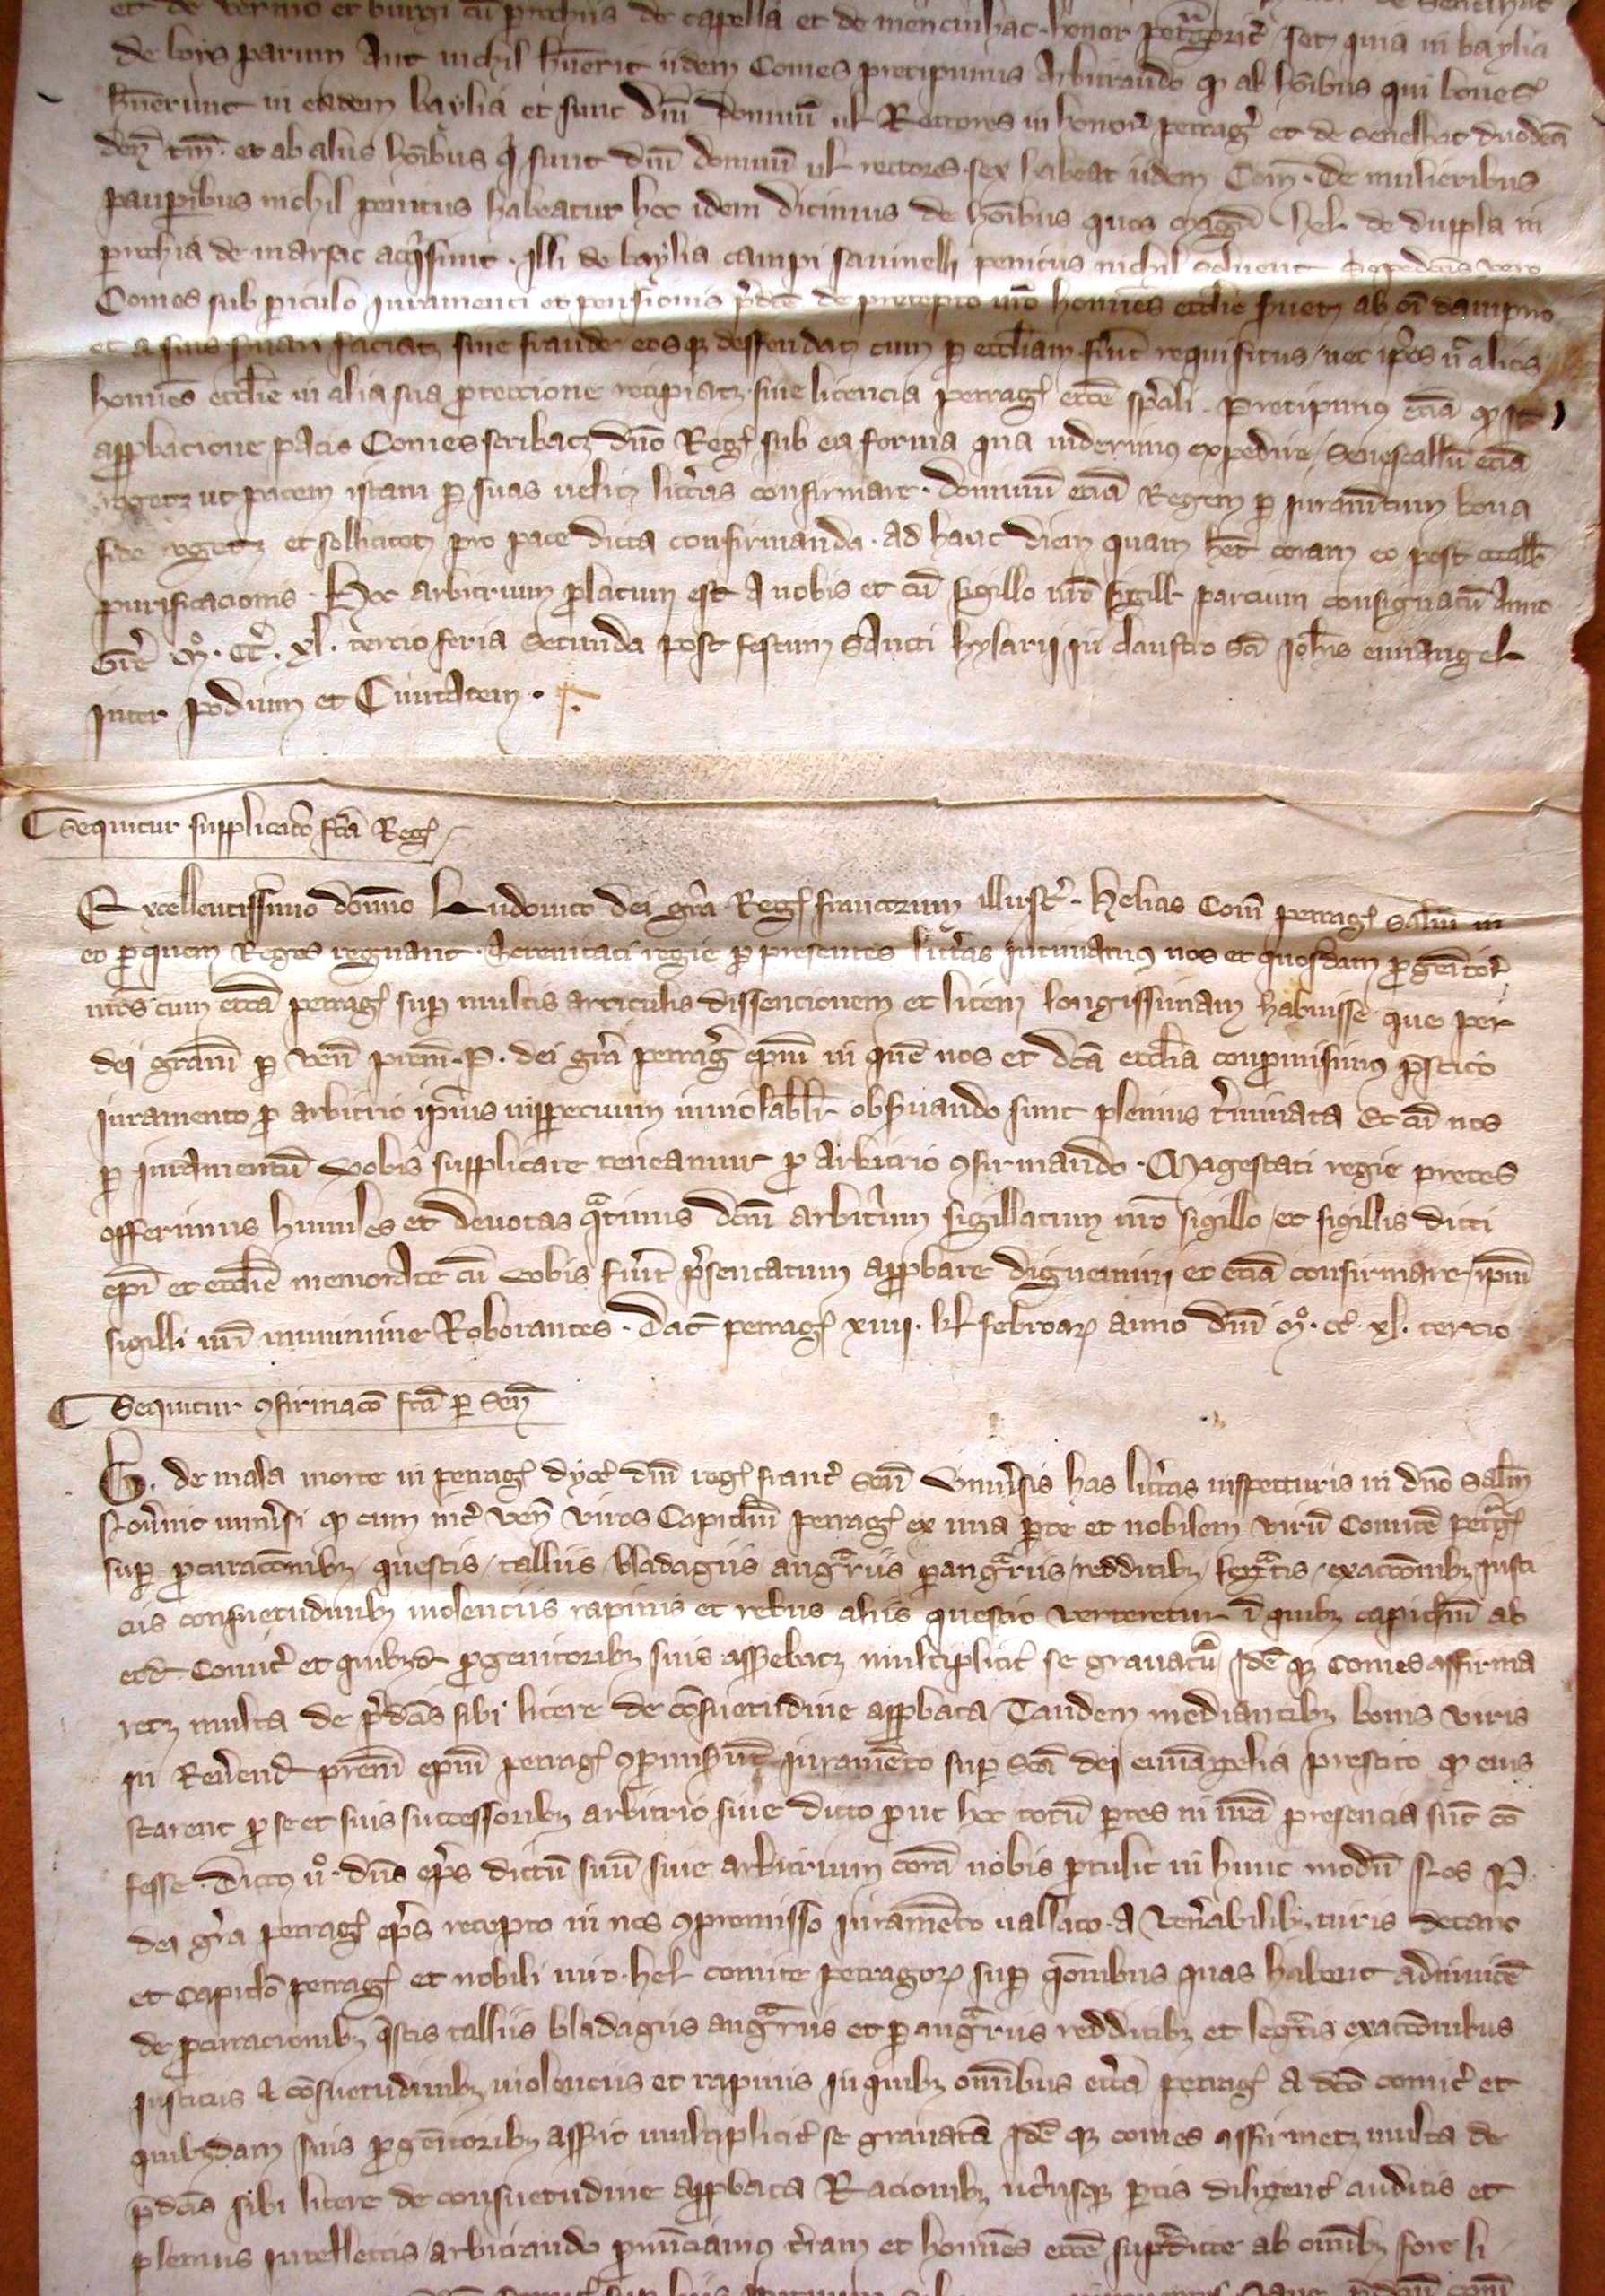 et de vernio et burgi cū prochiis de capella et de menciuhac honor petrḡoric̄ / set quia in baylia
de boys parum Aut nichil hūerit idem Comes precipimus Arbitrando q ab hōibus qui boues
hūerunt in eadem baylia et sunt dn̄i domuū ul Rectores in honor̄ petrag̃ et de Senelhac duodeci
den̄ tm̄. et ab aliis hōibus q̄ sunt dn̄i domuū ul rectores sex habeat idem Com̄. De mulieribus
paup̄ibus nichil penitus habeatur hoc idem dicimus de hōibus quos magn̄ hel. de duppla in
prochia de marsac acq̄sinit. Illi de baylia campi sauinelli penitus nichil soluent Sepedictus vero
Comes sub periculo iuramenti et pensionis p̄dc̄e de precepto nr̄o homines ecclie seruet ab oī dampno
et a suis seruari faciat sine fraude eosq; deffendat cum p eccliam fuīt requisitus / nec ip̄os ul̄ alios
homines ecclie in alia sua proteccione recipiat sine licencia petrag̃ eccē sp̄ali. Precipim9 eciā q
approbacione pacis Comes scribat dn̄o Regi sub ea forma qua uiderim9 expedire / Senescallū eciā
roget ut pacem istam p suas uelit litt̄as confirmare. dominū eciā Regem p iuram̄tum bona
fide roget et sollicitet pro pace dicta confirmanda. ad hanc diem quam h̄et coram eo post
purificacionis. Hoc arbitrium prolatum est A nobis et cū sigillo nr̄o sigill partium consignatū Anno
Gr̄e .m̊. cc̄. xl. tercio feria Secunda post festum Sancti hylarij in claustro Sc̄i Ioh̄is euuangel
inter podium et Ciuitatem.
Sequitur supplicatō fc̄ā Regi /
Excellentissimo domino Ludouico dei gr̄a Regi francorum illustr̄. Helias Com̄ petrag̃ salut̄ in
eo p quem Reges regnant. Serenitati regie p presentes litt̄as intimam9 nos et quosdam progēitor̄
nr̄os cum ecc̄a petrag̃ sup multis articulis dissencionem et litem longissimam habuisse que per
dei graciā p Ven̄ pr̄em .P. dei gr̄a petrag̃ ep̄m in quē nos et dc̄a ecclia conpromisim9 prestito
iuramento pro arbitrio ip̄ius inppetuum inuiolabilr̄ obseruando sunt plenius t̄minata Et cū nos
p iuramentū Vobis supplicare teneamur pro arbitrio 9firmando. Magestati regie preces
offerimus humiles et deuotas q̄tinus dc̄m arbitriūm sigillatum nr̄o sigillo / et sigillis dicti
ep̄i et ecclie memorate cū vobis fuīt p̄sentatum approbare dignemini et eciā confirmare / ip̄m
sigilli nr̄i munimine Roborantes. Dat̄ petrag̃ xiiij. kl februar̄ anno dn̄i .m̊. cc̄. xl. tercio
Sequitur 9firmacō fc̄ā p Sen̄
G. de mala morte in petrag̃ dyoc̄ dn̄i regi franc̄ Sen̄ Vniu̅sis has litt̄as inspecturis in dn̄o Salt̄m
Nouerint uniu̅si q cum int̄ ven̄ viros Capitlm̄ petrag̃ ex una parte et nobilem virū Comitē petrg̃
sup procuracōnibz, questis, talliis, bladagiis angariis parangariis, redditibz, leg̃atis, exaccōnibz iusti
ciis consuetudinibz uiolenciis rapinis et rebus aliis questio verteretur ī quibz capitlm̄ ab
eod Comit̄ et quibzd progenitoribz suis asserebat multiplicit̄ se grauatū Idē q; comes affirma
ret multa de p̄dcīs sibi licere de cōsuetudine approbata / Tandem mediantibz bonis viris
in Reuerend pr̄em ep̄m petrag̃ 9promisūt Iuramēto sup Sc̄a dei euuāgelia prestito q eius
starent pro se et suis successoribz arbitrio siue dicto prout hoc totū partes in nr̄a presencia sūt cō
fesse. Dict9 ů. dn̄s ep̄s dictū suū siue arbitrium corā nobis protulit in hunc modū Nos P.
dei gr̄a petrag̃ ep̄s recepto in nos 9promisso iuramēto uallato. A Ven̄abilibz uiris decano
et Capitlō petrag̃ et nobili uiro. hel comite petragor̄ sup q̄onibus quas habent adinuicē
de procuracionibz q̄stis talliis bladagiis angariis et parangariis redditibz et legatis exaccōnibus
iusticiis & cōsuetudinibz uiolenciis et rapinis in quibz omībus ecc̄a petrag̃ A dc̄o comit̄ et
quibzdam suis progēitoribz asserit multiplicit̄ se grauatā Idē q; comes affirmet multa de
p̄dcīs sibi licere de consuetudine approbata Racionibz ut̄usq; partis diligent̄ auditis et
plenius intellectis / arbitrando pronūciam9 t̄ram et homines ecc̄e sup̄dicte ab omībz fore li